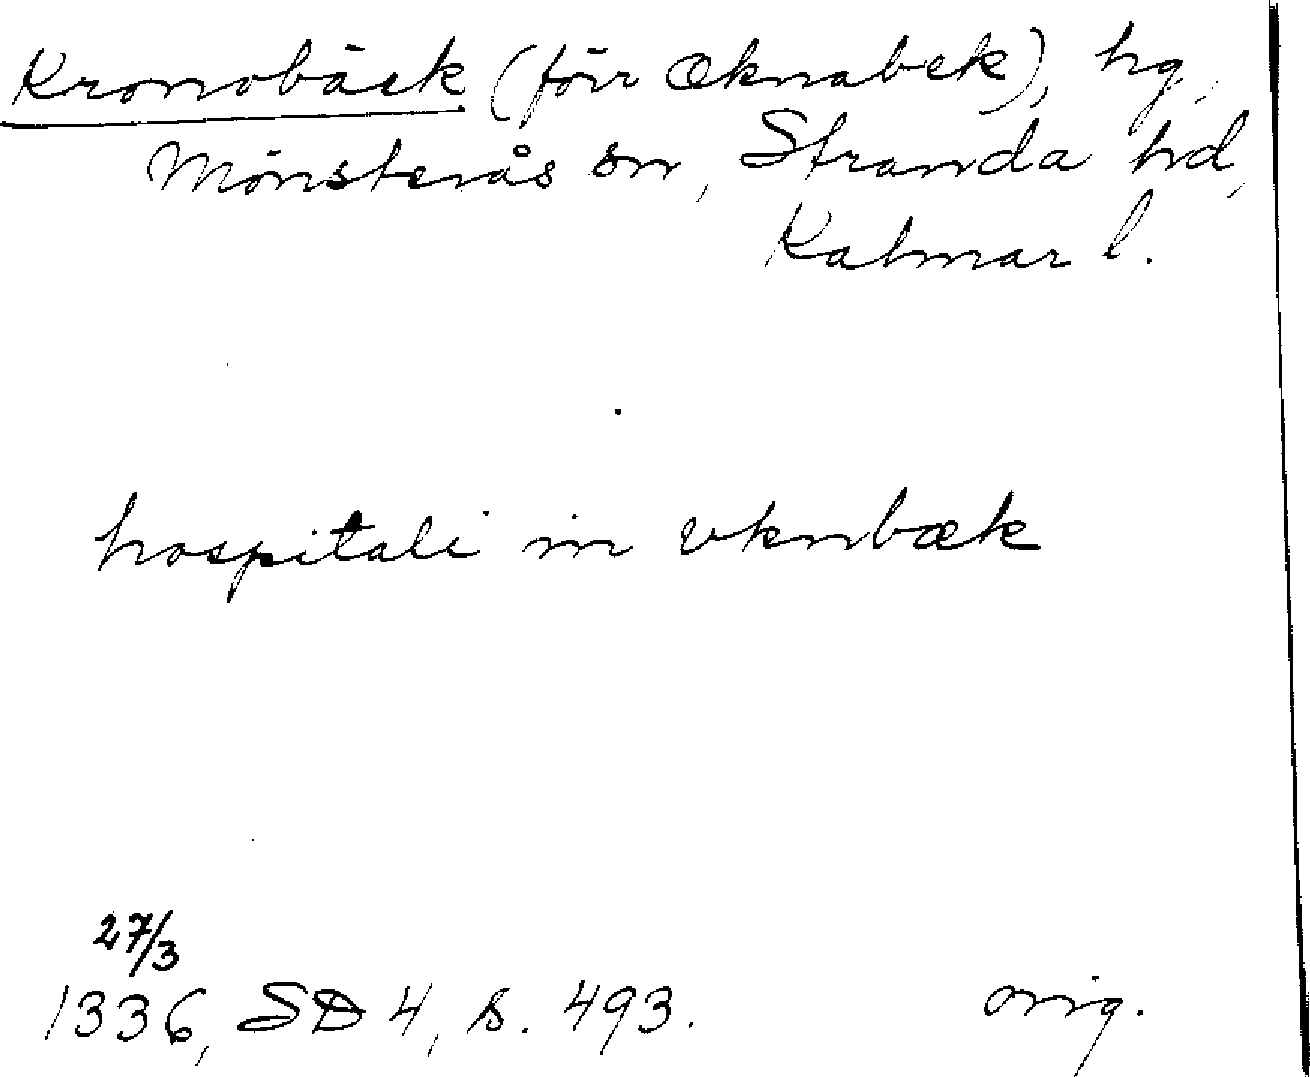 Kronobäck (förr Øknabek), hg,
Mönsterås sn, Stranda hd,
Kalmar l.
hospitali in vknbæk
27/3
1336, SD 4, s. 493. orig.